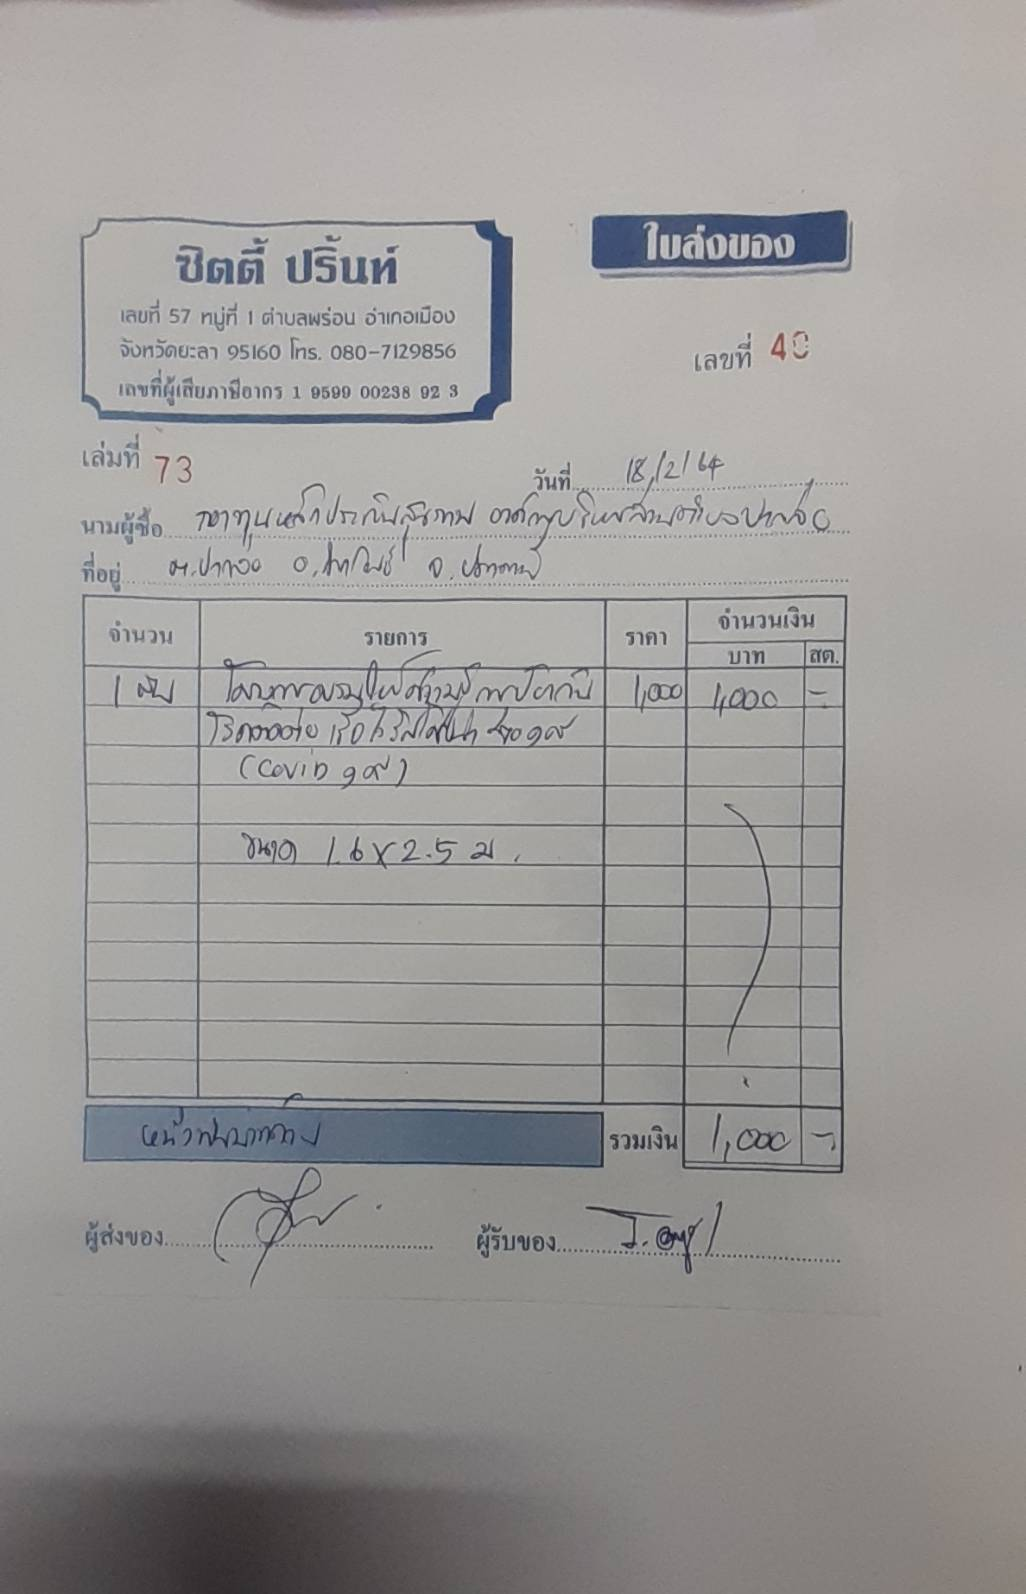 ซิตตี้ ปริ้นท์
เลขที่ 57 หมู่ที่ 1 ตำบลพร่อน อำเภอเมือง
จังหวัดยะลา 95160 โทร. 080-7129856
เลขที่ผู้เสียภาษีอากร 1 9599 00238 92 3
ใบส่งของ
เลขที่ 40
เล่มที่ 73
วันที่ 18/2/64
นามผู้ซื้อ กองทุนหลักประกันสุขภาพ องค์การบริหารส่วนตำบลปากล่อ
ที่อยู่ ต.ปากล่อ อ.โคกโพธิ์ จ.ปัตตานี
จำนวน รายการ ราคา จำนวนเงิน
บาท สต.
1 ผืน โครงการอบรมให้ความรู้การป้องกัน 1,000 1,000 -
โรคติดต่อ เชื้อไวรัสโคโรนา 2019
(Covid 19)
ขนาด 1.6 x 2.5 ม.
หนึ่งพันบาทถ้วน รวมเงิน 1,000 -
ผู้ส่งของ ผู้รับของ